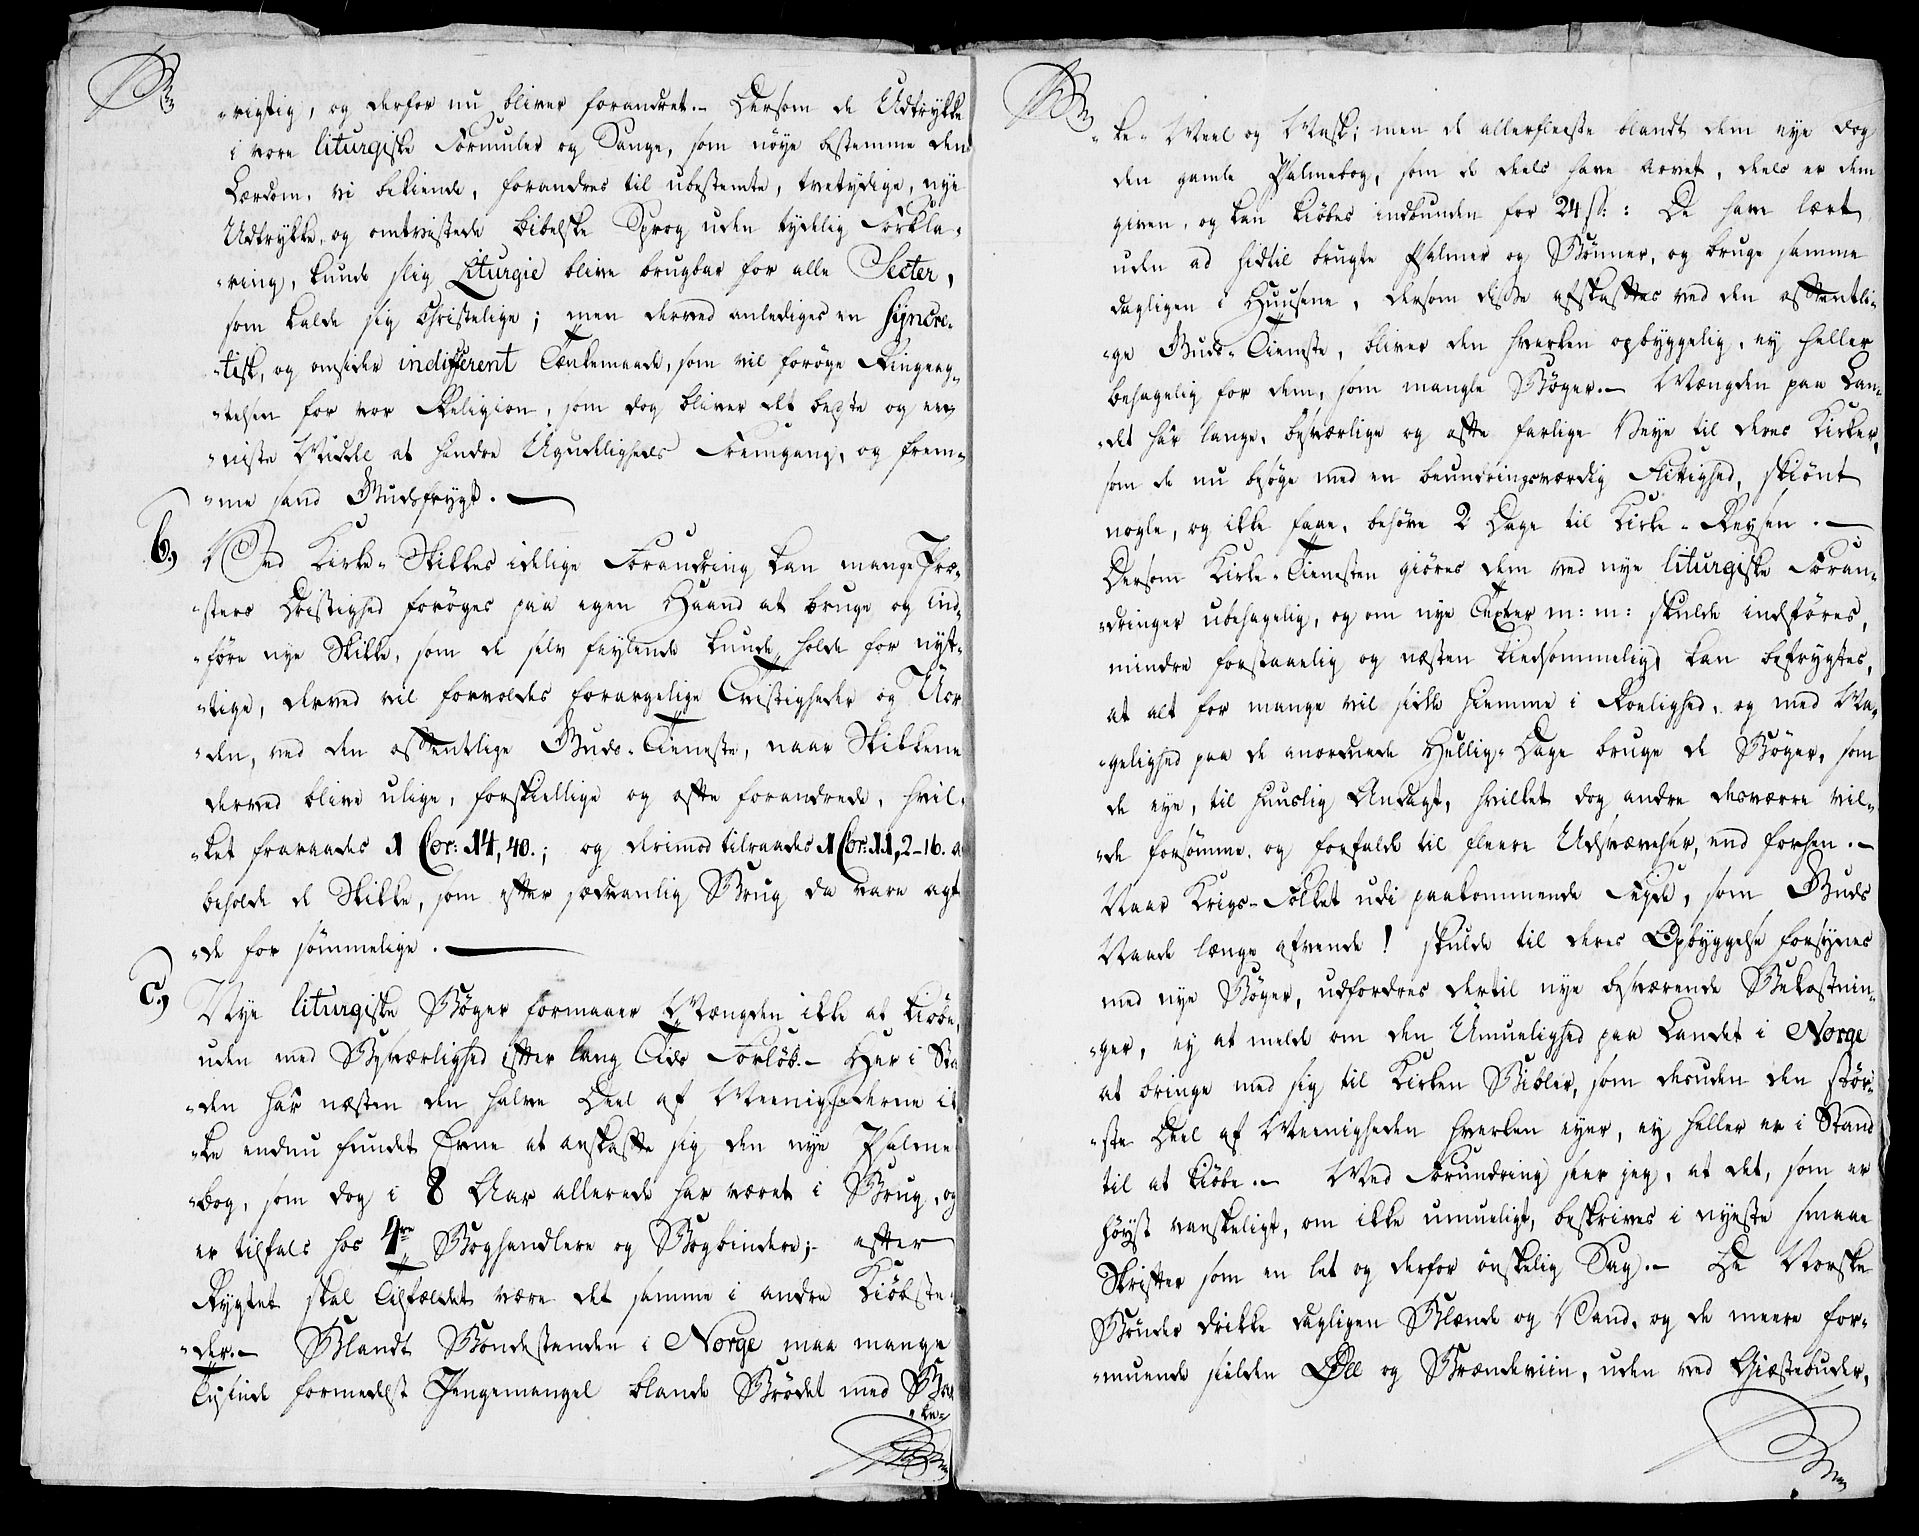 -rigtig, og derfor nu bliver forandret.- Dersom de Udtrykke
i vore liturgiske Formuler og Sange, som nöye bestemme den
Lærdom, vi bekiende, forandres til ubestemte, tvetydige, nye
Udtrykke, og omtvistede bibelske Sprog uden tydelig Forkla-
-ring, kunde slig Liturgie blive brugbar for alle Secter,
som kalde sig Christelige; men derved anlediges en Syncre-
-tisk, og omsider indifferent Tænkemaade, som vil foröge Ringeag-
-telsen for vor Religion, som dog bliver det beste og eene
-viste Middel at hindre Ugudeligheds Fremgang, og frem-
-me sand Gudsfrygt.
b, Ved Kirke-Skikkes idelige Forandring kan mange Præ-
-sters Dristighed foröges paa egen Haand at bruge og ind-
-före nye Skikke, som de selv feylende kunde holde for nyt-
-tige, derved vil forvoldes forargelige Tvistigheder og Uor
-den, ved den offentlige Guds-Tieneste, naar Skikkene
derved blive ulige, forskiellige og ofte forandrede, hvil-
-ket fraraades 1 Cor: 14, 40.; og derimod tilraades 1 Cor: 11, 2-16. a
beholde de Skikke, som efter sædvanlig Brug da vare agt
-de for sömmelige.
c, Nye liturgiske Böger formaaer Mængden ikke at kiöbe,
uden med Besværlighed efter lang Tids Forlöb.- Her i Sta
-den har næsten den halve Deel af Meenighederne ik
-ke endnu fundet Evne at anskaffe sig den nye Psalme
-bog, som dog i 8 Aar allerede har været i Brug, og
er tilfals hos 4re Boghandlere og Bogbindere;- efter
Rygtet skal Tilfældet være det samme i andre Kiöbste-
-der.- Blandt Bondestanden i Norge maa mange
Tusinde formedelst Pengemangel blande Brödet med Bar
-ke-
-ke- Meel og Mask; men de allerfleeste blandt dem eye dog
den gamle Psalmebog, som de deels have arvet, deels er dem
given, og kan kiöbes indbunden for 24 sk: : De have lært
uden ad hidtil brugte Psalmer og Bönner, og bruge samme
dagligen i Huusene, dersom disse afskaffes ved den offentli-
-ge Guds-Tieneste, bliver den hverken opbyggelig, ey heller
behagelig for dem, som mangle Böger.- Mængden paa Lan-
-det har lange, besværlige og ofte farlige Veye til deres Kirker,
som de nu besöge med en beundringsværdig Flittighed, skiönt
nogle, og ikke faae, behöve 2 Dage til Kirke-Reysen.-
Dersom Kirke-Tienesten giöres dem ved nye liturgiske Foran-
-dringer ubehagelig, og om nye Texter m: m: skulde indföres,
mindre forstaaelig og næsten kiedsommelig, kan befrygtes,
at alt for mange vil sidde hiemme i Roelighed, og med Ma-
-gelighed paa de anordnede Hellig-Dage bruge de Böger, som
de eye, til huuslig Andagt, hvilket dog andre desværre vil-
-de forsömme, og forfalde til fleere Udsvævelser, end forhen.-
Naar Krigs-Folket udi paakommende Feyde, som Guds
Naade længe afvende! skulde til deres Opbyggelse forsynes
med nye Böger, udfordres dertil nye besværende Bekostnin-
-ger, ey at melde om den Umuelighed paa Landet i Norge
at bringe med sig til Kirken Bibler, som desuden den stör-
-ste Deel af Meenigheden hverken eyer, ey heller er i Stand
til at kiöbe.- Med Forundring seer jeg, at det, som er
höyst vanskeligt, om ikke umueligt, beskrives i nyeste smaae
Skrifter som en let og derfor önskelig Sag.- De Norske
Bönder drikke dagligen Blande og Vand, og de meere for-
-muende sielden Öll og Brændeviin, uden ved Giæstebuder,